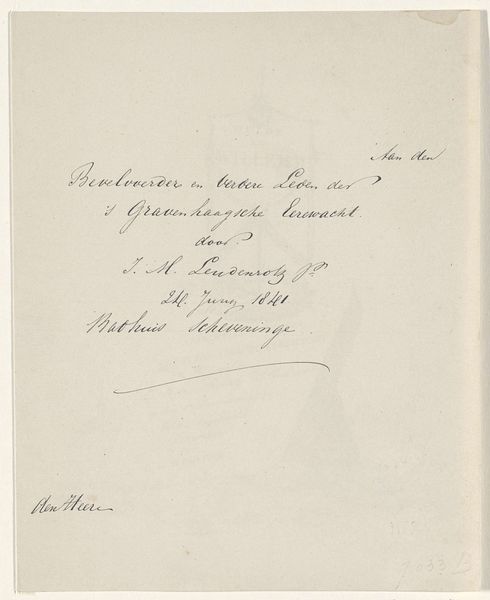 Aan den
Bevelvoerder en verdere Leden der
's Gravenhaagsche Eerewacht.
door
J. M.
24. Juny 1841
Badhuis Scheveninge.
den Heer